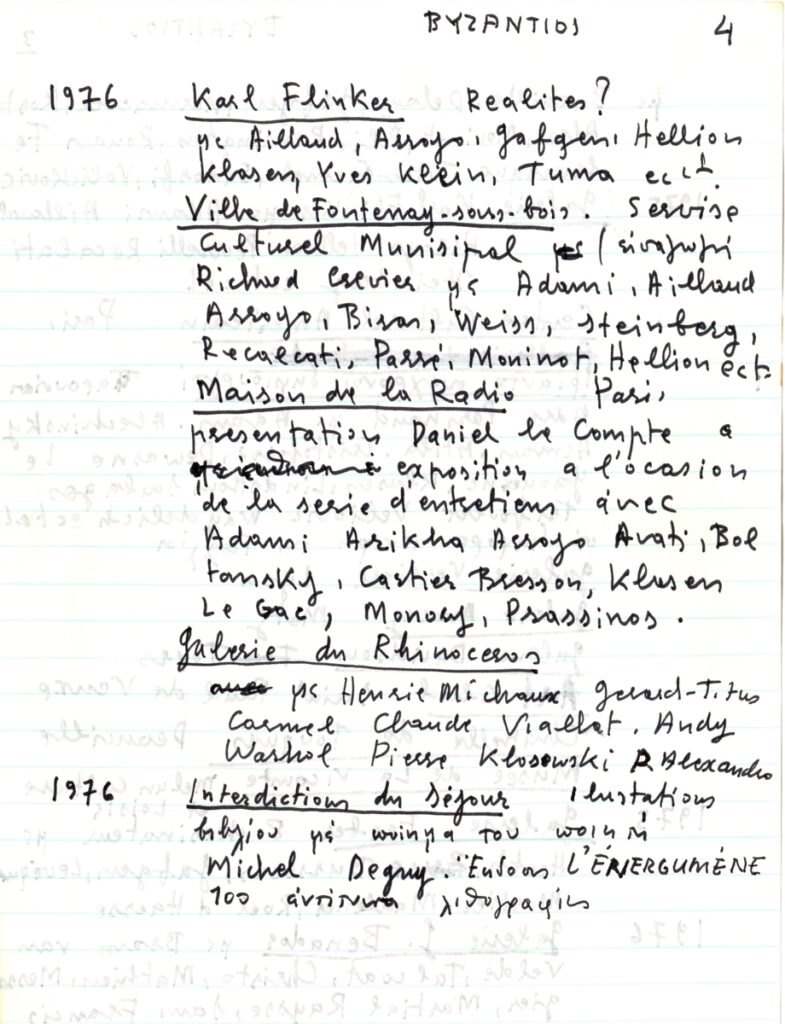 BYZANTIOS 4
1976 Karl Flinker Realites?
με Aillaud, Arroyo, Gäfgen, Hellion
Klasen, Yves Klein, Tuma ect.
Ville de Fontenay-sous-bois. Servise
Culturel Munisipal (συναγωγή
Richard Crevier με Adami, Aillaud
Arroyo, Biras, Weiss, Steinberg,
Recalcati, Parré, Moninot, Hellion ect.
Maison de la Radio Paris
presentation Daniel le Compte a
exposition a l'ocasion
de la serie d'entretiens avec
Adami Arikha Arroyo Avati, Bol
tansky, Cartier Bresson, Klasen
Le Gac, Monory, Prassinos.
Galerie du Rhinoceros
με Henrie Michaux Gerard-Titus
Carmel Claude Viallat. Andy
Warhol Pierre Klosowski P. Alexandro
1976 Interdictions du Séjour ilustations
βιβλίου με ποίημα του ποιητή
Michel Deguy. Ἔκδοσις L'ÉNERGUMÈNE
100 ἀντίτυπα λιθογραφίες